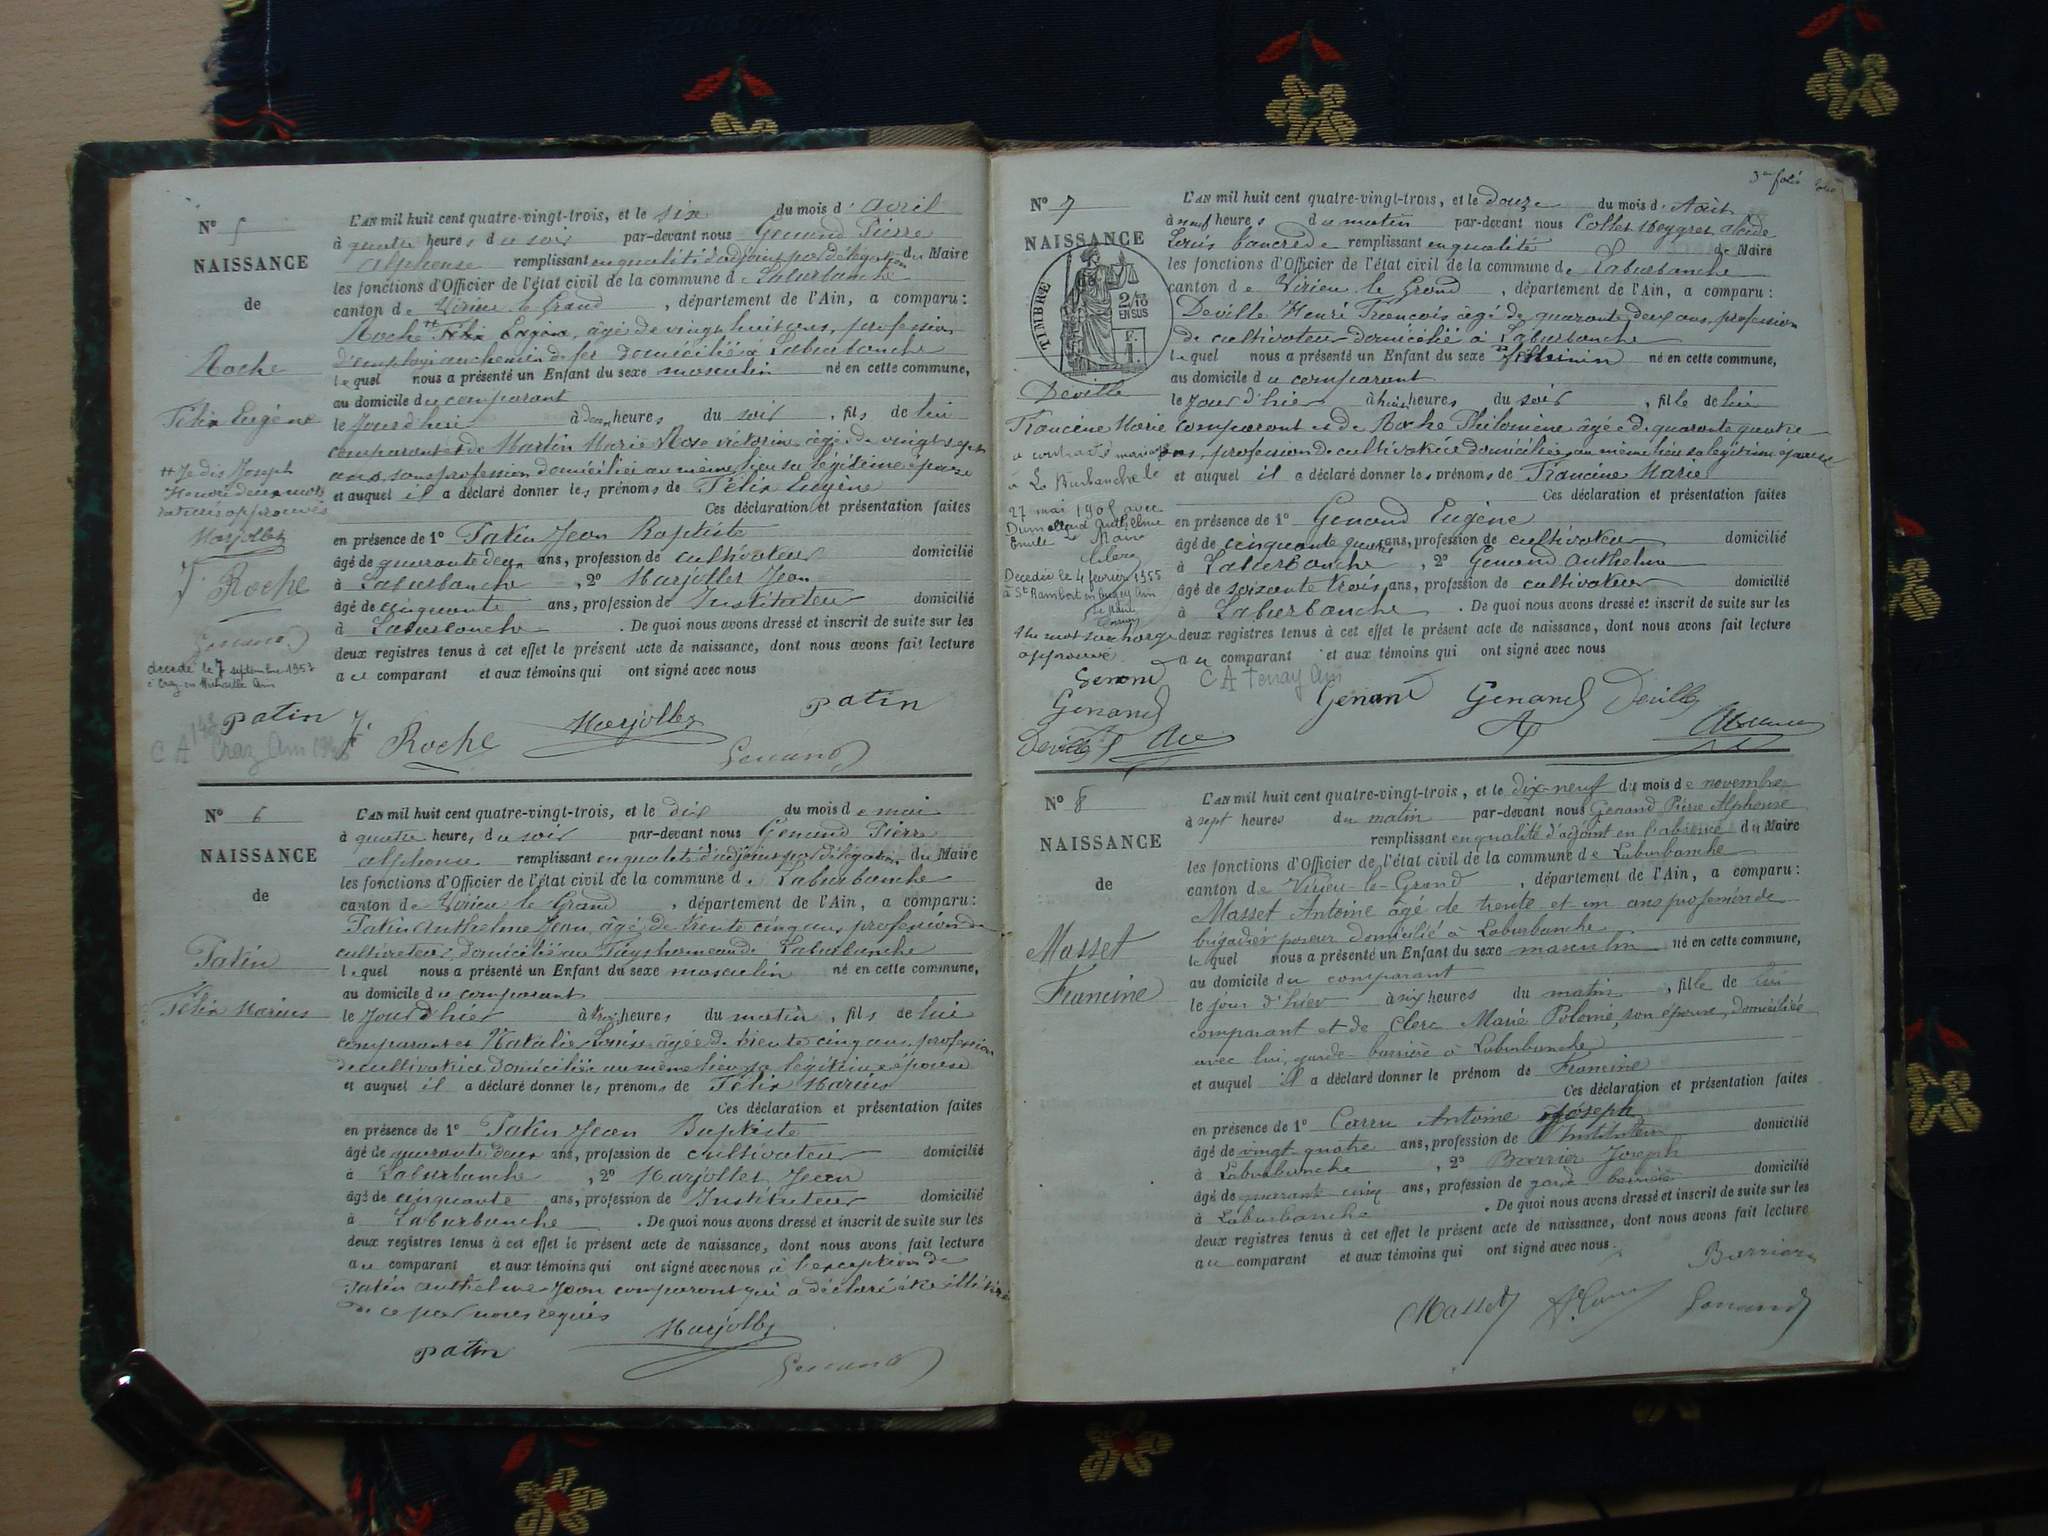 N° 5
NAISSANCE
de
Roche
Félix Eugène
++ Je dis Joseph
Honoré deux mots
rayés approuvés
Marjollet
J. Roche
Genand
décédé le 7 septembre 1957
Patin
L'AN mil huit cent quatre-vingt-trois, et le six du mois d'avril
à quatre heures du soir par-devant nous Genand Pierre
Alphonse remplissant en qualité d'adjoint par délégation du Maire
les fonctions d'Officier de l'état civil de la commune de Laburbanche
canton de Virieu le Grand, département de l'Ain, a comparu:
Roche ++ Félix Eugène, âgé de vingt huit ans, profession
d'employé au chemin de fer domicilié à Laburbanche
lequel nous a présenté un Enfant du sexe masculin né en cette commune,
au domicile du comparant
le jourd'hui à deux heures du soir, fils de lui
comparant et de Martin Marie Rose victorine âgée de vingt sept
ans, sans profession domiciliée au même lieu sa légitime épouse
et auquel il a déclaré donner les prénoms de Félix Eugène
Ces déclaration et présentation faites
en présence de 1° Patin Jean Baptiste
âgé de quarante deux ans, profession de cultivateur domicilié
à Laburbanche, 2° Marjollet Jean
âgé de cinquante ans, profession de Instituteur domicilié
à Laburbanche. De quoi nous avons dressé et inscrit de suite sur les
deux registres tenus à cet effet le présent acte de naissance, dont nous avons fait lecture
au comparant et aux témoins qui ont signé avec nous
J. Roche Marjollet Patin
Genand
N° 6
NAISSANCE
de
Patin
Félix Marius
L'AN mil huit cent quatre-vingt-trois, et le dix du mois de mai
à quatre heures du soir par-devant nous Genand Pierre
Alphonse remplissant en qualité d'adjoint par délégation du Maire
les fonctions d'Officier de l'état civil de la commune de Laburbanche
canton de Virieu le Grand, département de l'Ain, a comparu:
Patin Anthelme Jean, âgé de trente cinq ans, profession de
cultivateur, domicilié au hameau de Laburbanche
lequel nous a présenté un Enfant du sexe masculin né en cette commune,
au domicile du comparant
le jour d'hier à trois heures du matin, fils de lui
comparant et Natalie Louise âgée de trente cinq ans, profession
de cultivatrice domiciliée au même lieu sa légitime épouse
et auquel il a déclaré donner les prénoms de Félix Marius
Ces déclaration et présentation faites
en présence de 1° Patin Jean Baptiste
âgé de quarante deux ans, profession de cultivateur domicilié
à Laburbanche, 2° Marjollet Jean
âgé de cinquante ans, profession de Instituteur domicilié
à Laburbanche. De quoi nous avons dressé et inscrit de suite sur les
deux registres tenus à cet effet le présent acte de naissance, dont nous avons fait lecture
au comparant et aux témoins qui ont signé avec nous à l'exception de
Patin Anthelme Jean comparant qui a déclaré être illétiré
de ce par nous requis
Patin Marjollet
Genand
3me folio
N° 7
NAISSANCE
TIMBRE
2/10
EN SUS
F.
1.
Deville
Francine Marie
a contracté mariage
à La Burbanche le
27 mai 1905 avec
Dumollard Anthelme
Emile Le Maire
Clerc
Décédée le 4 février 1955
à St Rambert en Bugey Ain
Le Maire
++ le mot surchargé
approuvé
Genand
Genand
Deville
L'AN mil huit cent quatre-vingt-trois, et le douze du mois d'Août
à neuf heures du matin par-devant nous Collet Meygret Alcide
Louis Tancrède remplissant en qualité de Maire
les fonctions d'Officier de l'état civil de la commune de Laburbanche
canton de Virieu le Grand, département de l'Ain, a comparu:
Deville Henri François âgé de quarante deux ans, profession
de cultivateur domicilié à Laburbanche
lequel nous a présenté un Enfant du sexe ++ féminin né en cette commune,
au domicile du comparant
le jour d'hier à huit heures du soir, fille de lui
comparant et de Roche Philomène âgée de quarante quatre
ans, profession de cultivatrice domiciliée au même lieu sa légitime épouse
et auquel il a déclaré donner les prénoms de Francine Marie
Ces déclaration et présentation faites
en présence de 1° Genand Eugène
âgé de cinquante quatre ans, profession de cultivateur domicilié
à Laburbanche, 2° Genand Anthelme
âgé de soixante trois ans, profession de cultivateur domicilié
à Laburbanche. De quoi nous avons dressé et inscrit de suite sur les
deux registres tenus à cet effet le présent acte de naissance, dont nous avons fait lecture
au comparant et aux témoins qui ont signé avec nous
C A Tenay Ain
Genand Genand Deville
N° 8
NAISSANCE
de
Masset
Francine
L'AN mil huit cent quatre-vingt-trois, et le dix-neuf du mois de novembre
à sept heures du matin par-devant nous Genand Pierre Alphonse
remplissant en qualité d'adjoint en l'absence du Maire
les fonctions d'Officier de l'état civil de la commune de Laburbanche
canton de Virieu-le-Grand, département de l'Ain, a comparu:
Masset Antoine âgé de trente et un ans profession de
brigadier poseur domicilié à Laburbanche
lequel nous a présenté un Enfant du sexe masculin né en cette commune,
au domicile du comparant
le jour d'hier à six heures du matin, fille de lui
comparant et de Clerc Marie Polomie, son épouse, domiciliée
avec lui, garde-barrière à Laburbanche
et auquel il a déclaré donner le prénom de Francine
Ces déclaration et présentation faites
en présence de 1° Carru Antoine Joseph
âgé de vingt-quatre ans, profession de Instituteur domicilié
à Laburbanche, 2° Barrier Joseph
âgé de quarante cinq ans, profession de garde barrière domicilié
à Laburbanche. De quoi nous avons dressé et inscrit de suite sur les
deux registres tenus à cet effet le présent acte de naissance, dont nous avons fait lecture
au comparant et aux témoins qui ont signé avec nous.
Barrier
Masset Genand